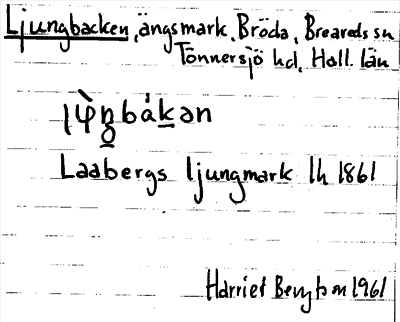 Ljungbacken, ängsmark, Bröda, Breareds sn
Tönnersjö hd. Hall. län
Laabergs ljungmark lh 1861
Harriet Bengtson 1961